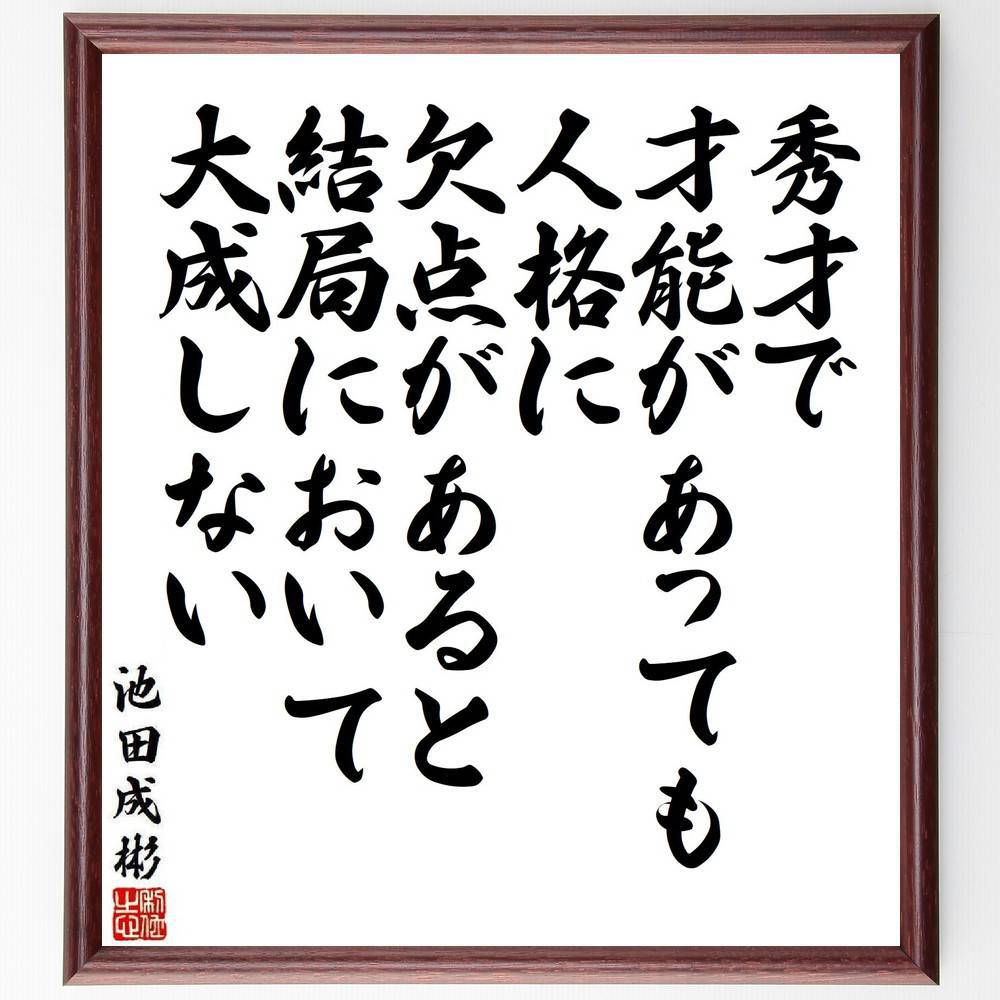 秀才で
才能があっても
人格に
欠点があると
結局において
大成しない
池田成彬